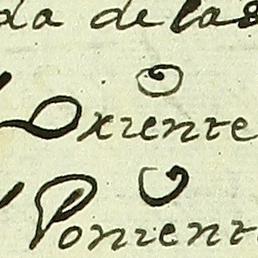 da de las
Oxriente
Ponient